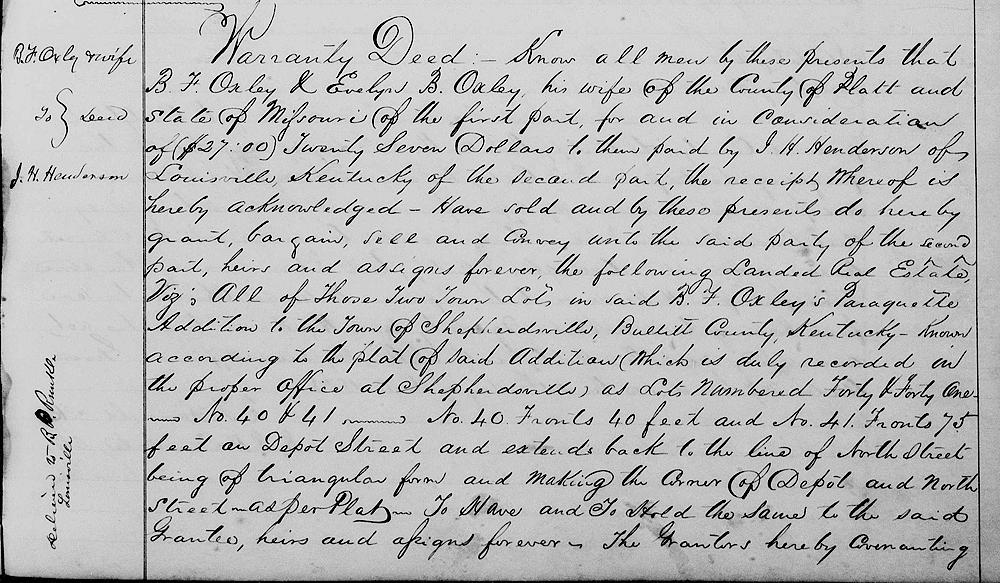 B. F. Oxley & wife
To } Deed
J. H. Henderson
Warranty Deed :- Know all men by these presents that
B. F. Oxley & Evelyn B. Oxley, his wife of the County of Platt and
State of Missouri of the first part, for and in Consideration
of ($27:00) Twenty Seven Dollars to them paid by J. H. Henderson of
Louisville, Kentucky of the second part, the receipt whereof is
hereby acknowledged - Have sold and by these presents do hereby
grant, bargain, sell and convey unto the said party of the second
part, heirs and assigns forever, the following Landed Real Estate,
Viz; All of Those Two Town Lots in said B. F. Oxley's Paraquette
Addition to the Town of Shepherdsville, Bullitt County, Kentucky - Known
according to the plat of said Addition (which is duly recorded in
the proper office at Shepherdsville) as Lots numbered Forty & Forty One-
No. 40 & 41 No. 40. Fronts 40 feet and No. 41. Fronts 75
feet on Depot Street and extends back to the line of North Street
being of triangular form and making the Corner of Depot and North
Street - as Per Plat - To Have and To Hold the same to the said
Grantee, heirs and assigns forever - The Grantors hereby Covenanting
Delivered to
Louisville